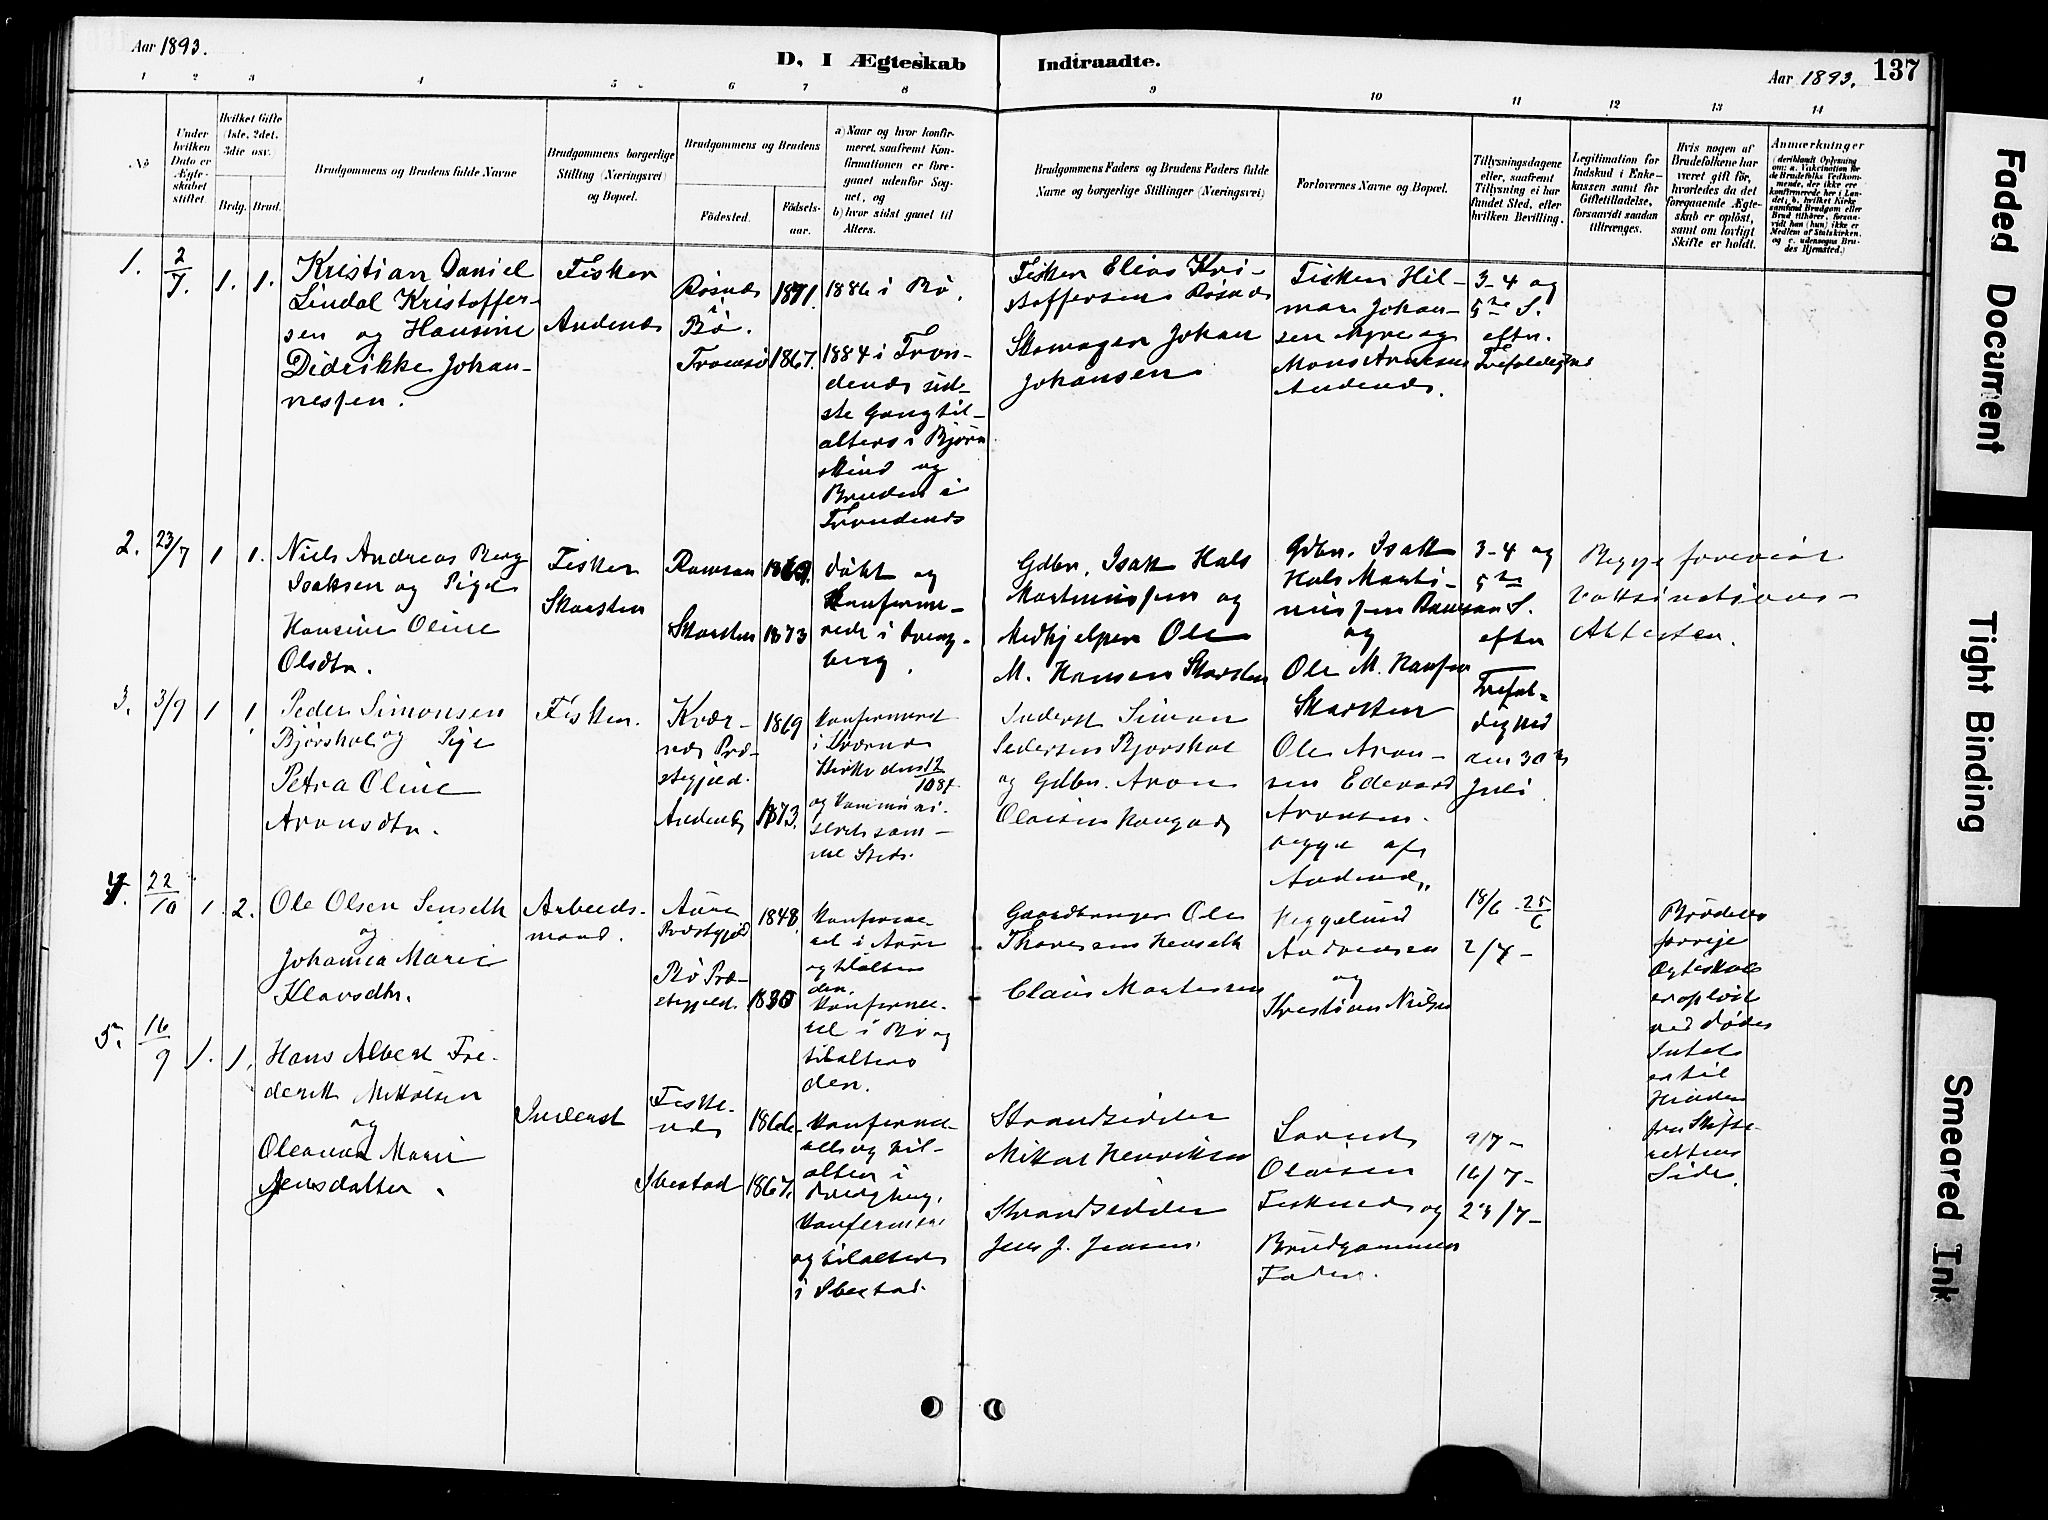 Aar 1893.
D. I Ægteskab Indtraadte.
Aar 1893. 137
1 2 3 4 5 6 7 8 9 10 11 12 13 14
No
Under hvilken Dato er Ægteskabet stiftet.
Hvilket Gifte (1ste, 2det, 3die osv.
Brdg. Brud.
Brudgommens og Brudens fulde Navne
Brudgommens borgerlige Stilling (Næringsvei) og Bopæl.
Brudgommens og Brudens
Fødested.
Fødselsaar.
a) Naar og hvor konfirmeret, saafremt Konfirmationen er foregaaet udenfor Sognet, og
b) hvor sidst gaaet til Alters.
Brudgommens Faders og Brudens Faders fulde Navne og borgerlige Stillinger (Næringsvei)
Forlovernes Navne og Bopæl.
Tillysningsdagene eller, saafremt Tillysning ei har fundet Sted, efter hvilken Bevilling.
Legitimation for Indskud i Enkekassen samt for Giftetilladelse, forsaavidt saadan tiltrænges.
Hvis nogen af Brudefolkene har været gift før, hvorledes da det foregaaende Ægteskab er opløst, samt om lovligt Skifte er holdt.
Anmærkninger
(deriblandt Oplysning om: a. Vakcination for de Brudefolks Vedkommende, der ikke ere konfirmerede her i Landet; b. hvilket Kirkesamfund Brudgom eller Brud tilhører, forsaavidt han (hun) ikke er Medlem af Statskirken, og c. udensogns Brudes Hjemsted.)
1. 2/7. 1. 1.
Kristian Daniel
Lindal Kristoffer-
sen og Hansine
Didrikke Johan-
nessen.
Fisker
Andenæs
Røsnæs
i
Bø.
Tromsø
1871.
1867.
1886 i Bø.
1884 i Tron-
denæs sid-
ste Gang til-
alters i Bjørn
skind og
Bruden i
Trondenæs
Fisker Elias Kri-
stoffersen Røsnæs
Skomager Johan
Johansen
Fisker Hil-
mar Johan-
sen Myre og
Mons Arnesen
Andenæs.
3-4 og
5te S.
efter.
Trefoldighed
2. 23/7 1 1.
Niels Andreas Berg
Isaksen og Pige
Hansine Oline
Olsdtr.
Fisker
Skarsten
Ramsaa
Skarsten
1873
døbt og
konfirme-
rede i Dverg-
berg.
Gdbr. Isak Hals
Martinussen og
Medhjelper Ole
M. Hansen Skarsten
Gdbr. Isak
Hals Marti-
nussen Ramsaa
og
Ole M. Hansen
Skarsten
3-4 og
5te
S.
efter
Trefol-
dighed
den 30te
Juli
Begge foreviste
Vaksinations-
Attester.
3. 3/9 1 1.
Peder Simonsen
Bjørskal og Pige
Petra Oline
Aronsdtr.
Fisker.
Kvær-
næs Præ-
stegjeld.
Andenæs
1869
1873.
Konfirmeret
i Kværnæs
Kirke den 12/10 84
og kommuni-
seret sam-
me Sted.
Inderst Simon
Pedersen Bjørskal
og Gdbr. Aron
Olaisen Haugnæs
Ole Aron-
sen Edevard
Aronsen.
begge af
Andenæs
4. 22/10 1. 2.
Ole Olsen
og
Johanna Marie
Klausdtr.
Arbeids-
mand.
Aure
Præstegjeld
Bø Præ-
stegjeld.
1848.
Konfirme-
ret i Aure
og tilalters
den.
Konfirme-
ret i Bø og
tilalters
den.
Gaardbruger Ole
Thoresen
Claus Mortensen
Heggelund
Andreassen
og
Kristian Nielsen
18/6 - 25/6
2/7 -
Brudens
forrige
Ægteskab
er opløst
ved Døden
Intet
er til
Hinder
fra Skifte-
rettens
Side.
5. 16/9 1. 1.
Hans Albert Fre-
derik Mikalsen
og
Oleanna Marie
Jensdatter.
Inderst
Fiske-
næs
Ibestad
1866
1867.
Konfirmer-
et og til-
alters i
Dverberg.
Konfirmeret
og tilalters
i Ibestad.
Strandsidder
Mikal Henriksen
Strandsidder
Jens J. Jensen.
Lorents
Olaisen
Fiskenæs og
Brudgommens
Fader.
9/7 -
16/7 -
23/7 -
Faded Document
Tight Binding
Smeared Ink